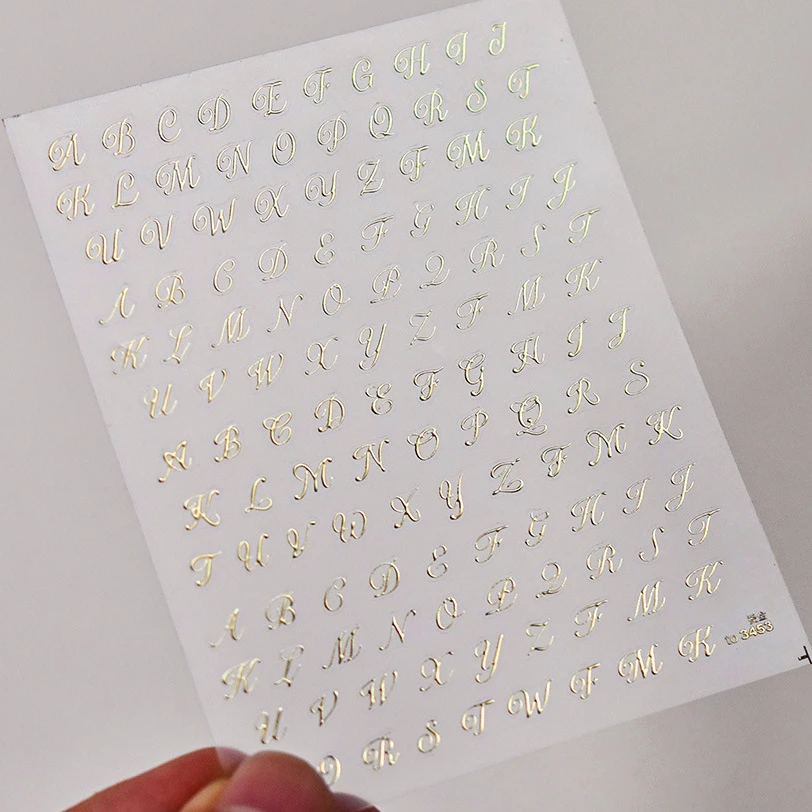 A B C D E F G H I J
K L M N O P Q R S T
U V W X Y Z F M K
A B C D E F G H I J
K L M N O P Q R S T
U V W X Y Z F M K
A B C D E F G H I J
K L M N O P Q R S
T U V W X Y Z F M K
A B C D E F G H I J
K L M N O P Q R S T
U V W X Y Z F M K
R S T W F M K
to 3453